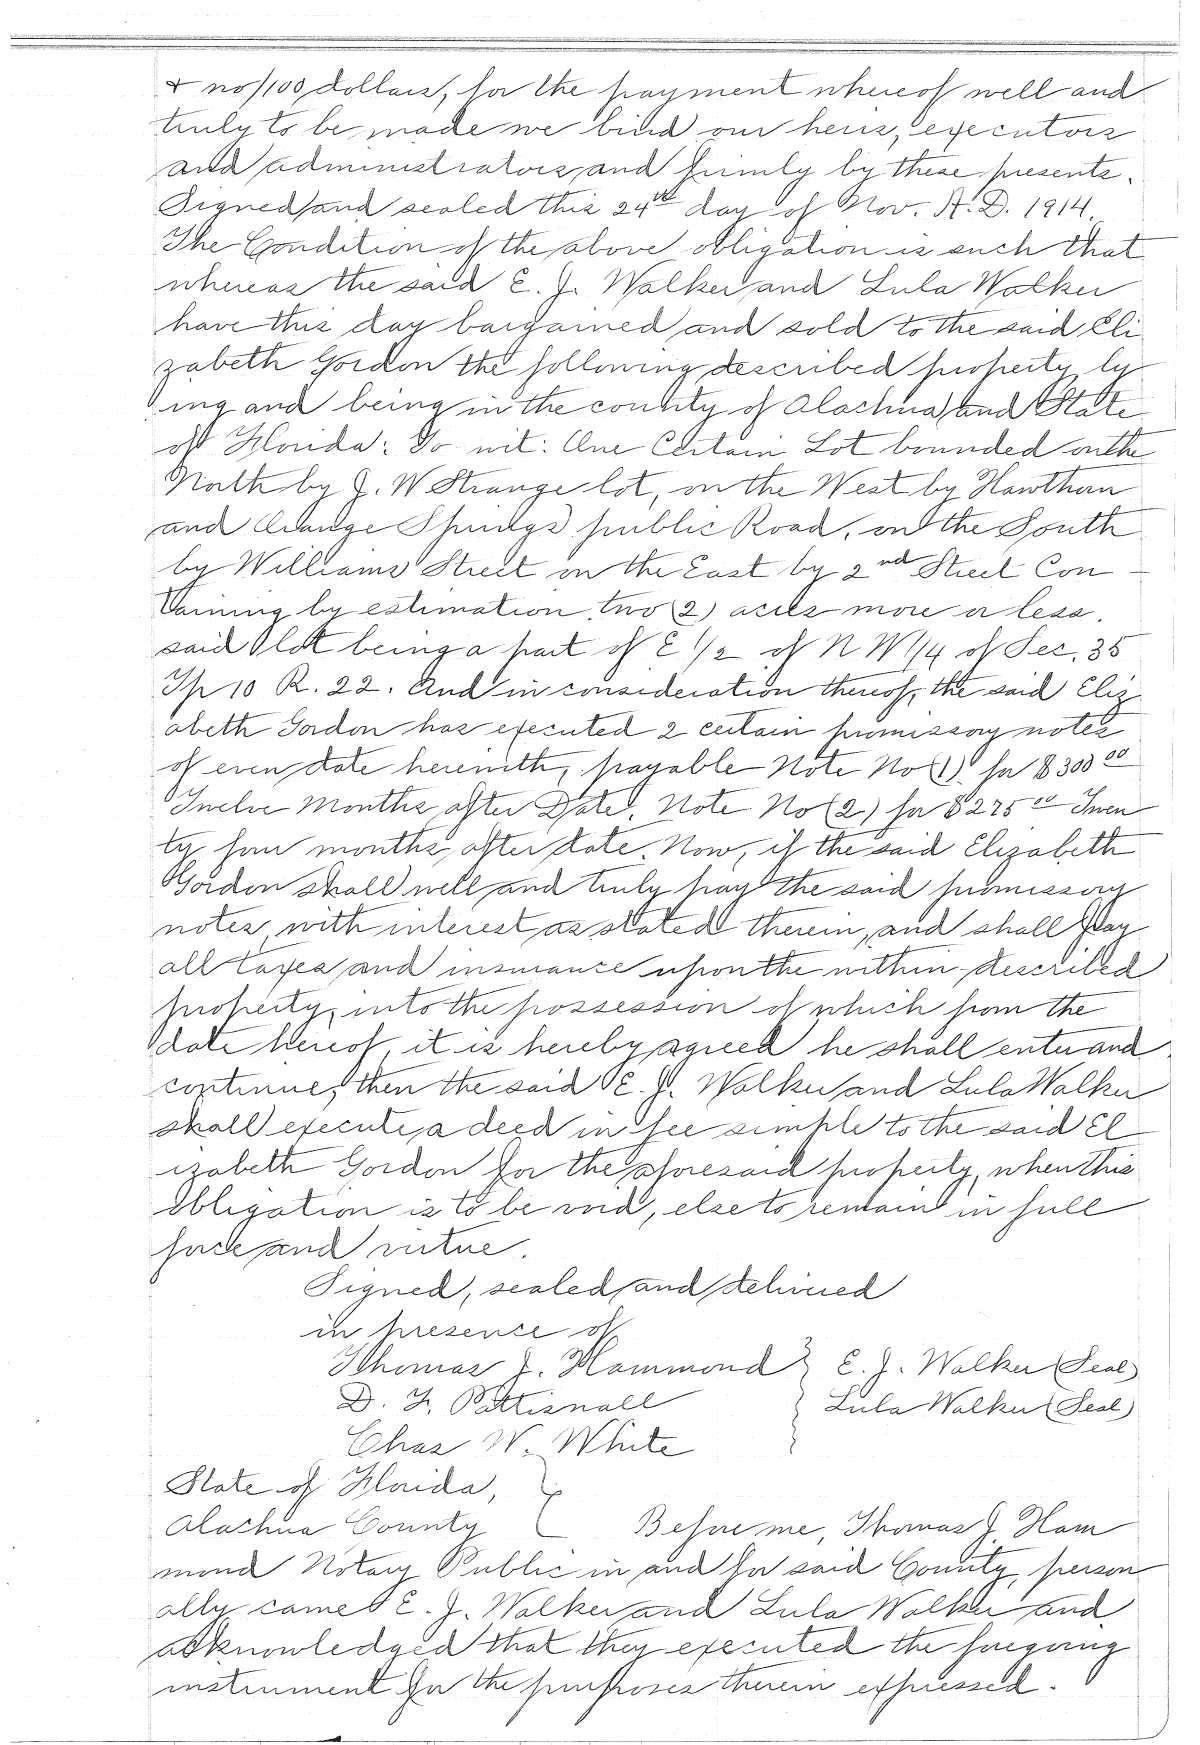 & no/100 dollars, for the payment whereof well and
truly to be made we bind our heirs, executors
and administrators and firmly by these presents.
Signed and sealed this 24th day of Nov. A.D. 1914.
The Condition of the above obligation is such that
whereas the said E. J. Walker and Lula Walker
have this day bargained and sold to the said Eli
zabeth Gordon the following described property ly
ing and being in the county of Alachua and State
of Florida: To wit: One Certain Lot bounded on the
North by J. W Strange lot, on the West by Hawthorn
and Orange Springs public Road, on the South
by Williams Street on the East by 2nd Street Con-
taining by estimation two (2) acres more or less.
said lot being a part of E 1/2 of N W 1/4 of Sec. 35
Tp 10 R. 22. And in consideration thereof, the said Eliz
abeth Gordon has executed 2 certain promissory notes
of even date herewith, payable Note No (1) for $300 00
Twelve Months after Date. Note No (2) for $275 00 Twen
ty four months after date. Now, if the said Elizabeth
Gordon shall well and truly pay the said promissory
notes, with interest as stated therein, and shall pay
all taxes and insurance upon the within described
property, into the possession of which from the
date hereof, it is hereby agreed he shall enter and
continue, then the said E. J. Walker and Lula Walker
shall execute a deed in fee simple to the said El
izabeth Gordon for the aforesaid property, when this
obligation is to be void, else to remain in full
force and virtue.
Signed, sealed and delivered
in presence of
Thomas J. Hammond } E. J. Walker (Seal)
D. F. Pattisnall Lula Walker (Seal)
Chas W. White
State of Florida,
Alachua County Before me, Thomas J. Ham
mond Notary Public in and for said County, person
ally came E. J. Walker and Lula Walker and
acknowledged that they executed the foregoing
instrument for the purposes therein expressed.